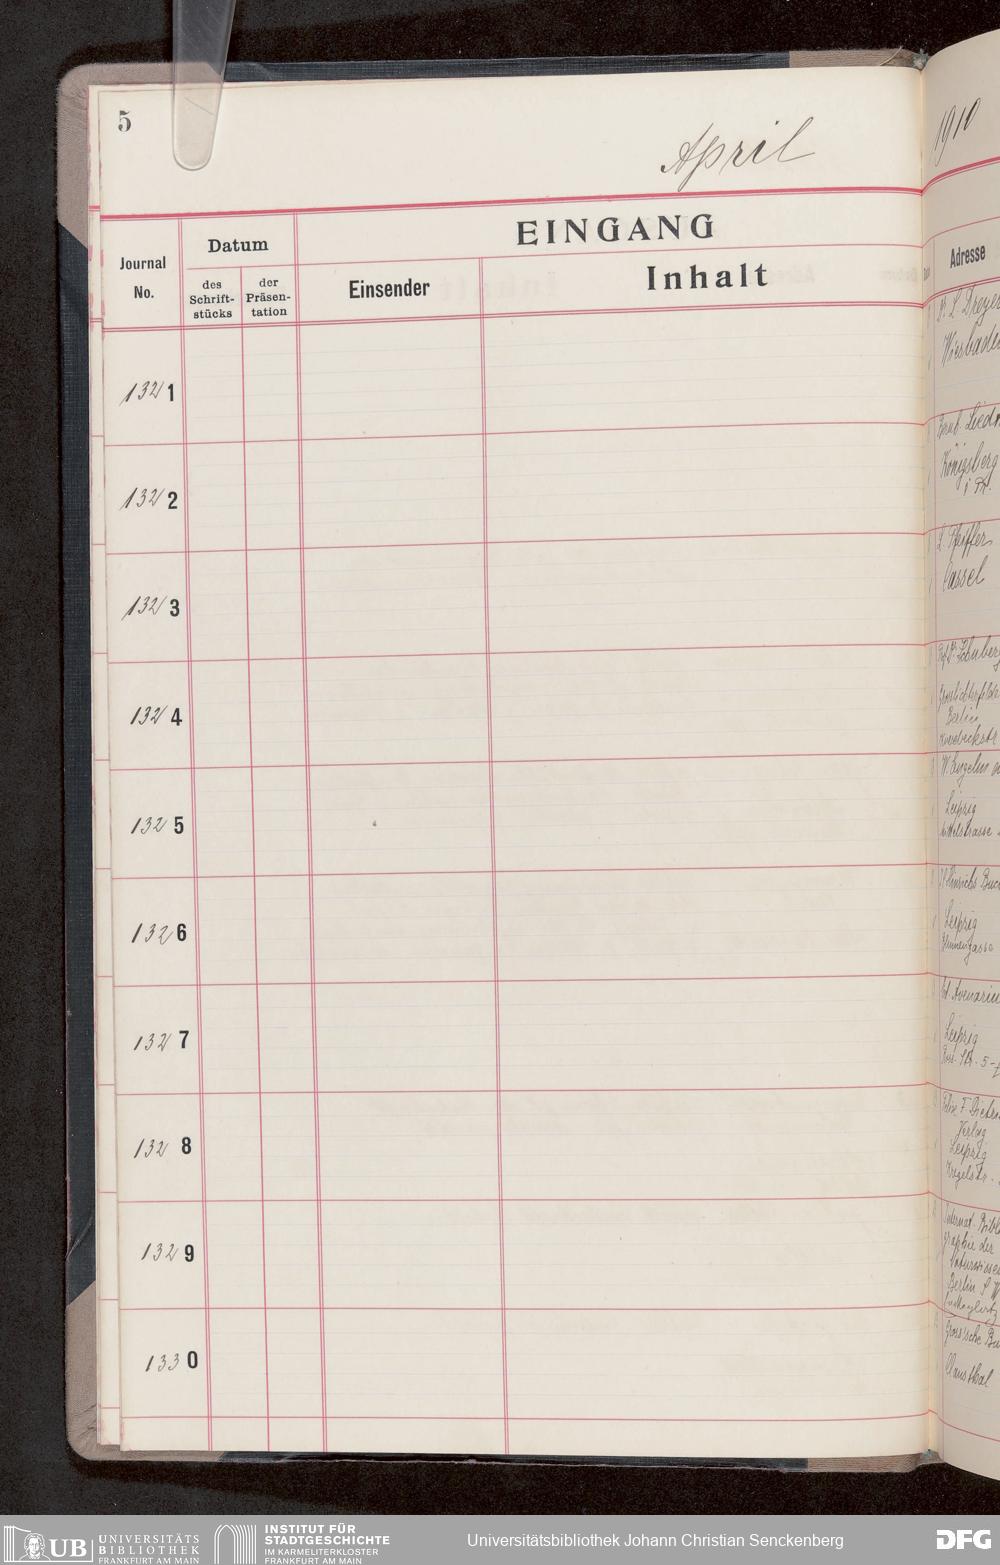 5
April
1910
EINGANG
Journal
No.
Datum
des
Schrift-
stücks
der
Präsen-
tation
Einsender
Inhalt
Adresse
1321
1322
1323
1324
1325
1326
1327
1328
1329
1330
Wiesbaden
Königsberg
i Pr.
L. Pfeiffer
Cassel
Berlin
Leipzig
Leipzig
Leipzig
Verlag
Leipzig
Berlin S W
Clausthal
UB UNIVERSITÄTS
BIBLIOTHEK
FRANKFURT AM MAIN
INSTITUT FÜR
STADTGESCHICHTE
IM KARMELITERKLOSTER
FRANKFURT AM MAIN
Universitätsbibliothek Johann Christian Senckenberg
DFG